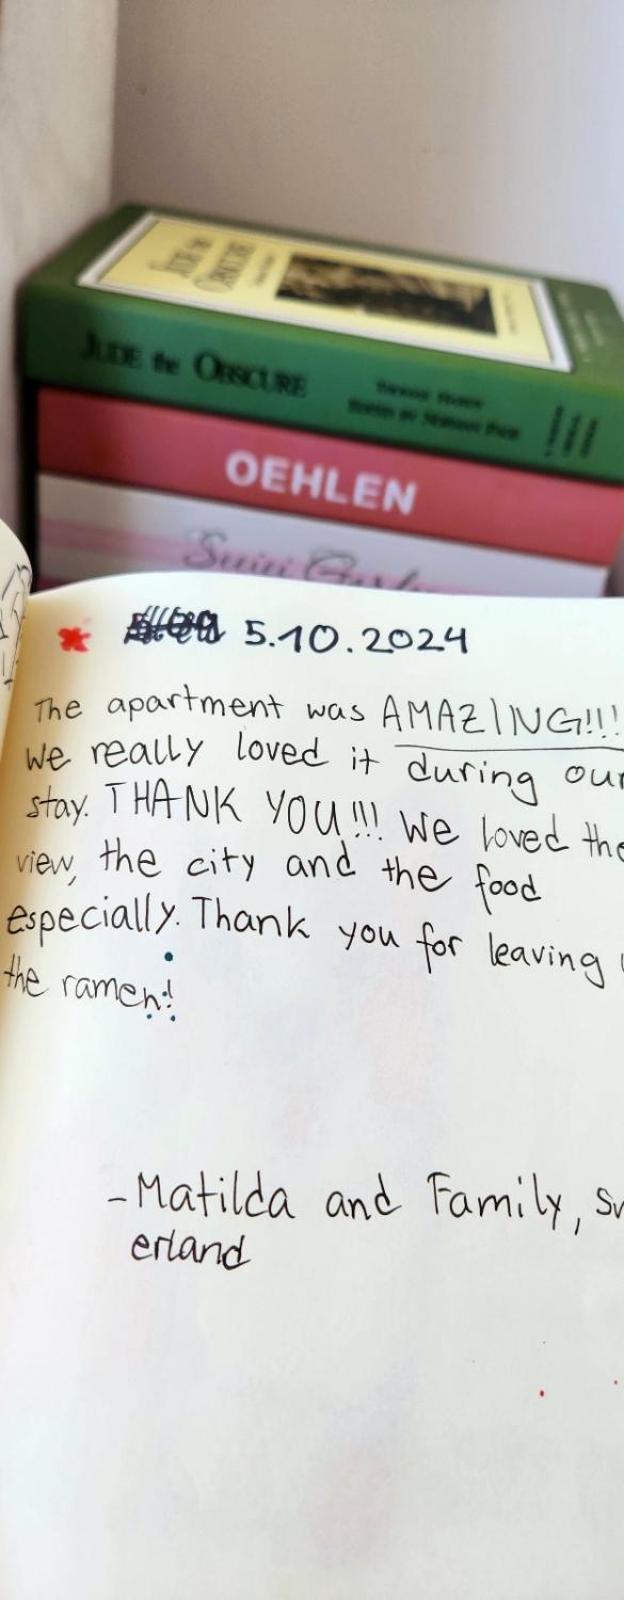 JUDE the OBSCURE
JUDE the OBSCURE
OEHLEN
5.10.2024
The apartment was AMAZING!!!
We really loved it during our
stay. THANK YOU!!! We loved the
view, the city and the food
especially. Thank you for leaving
the ramen!
- Matilda and Family, Sw
erland